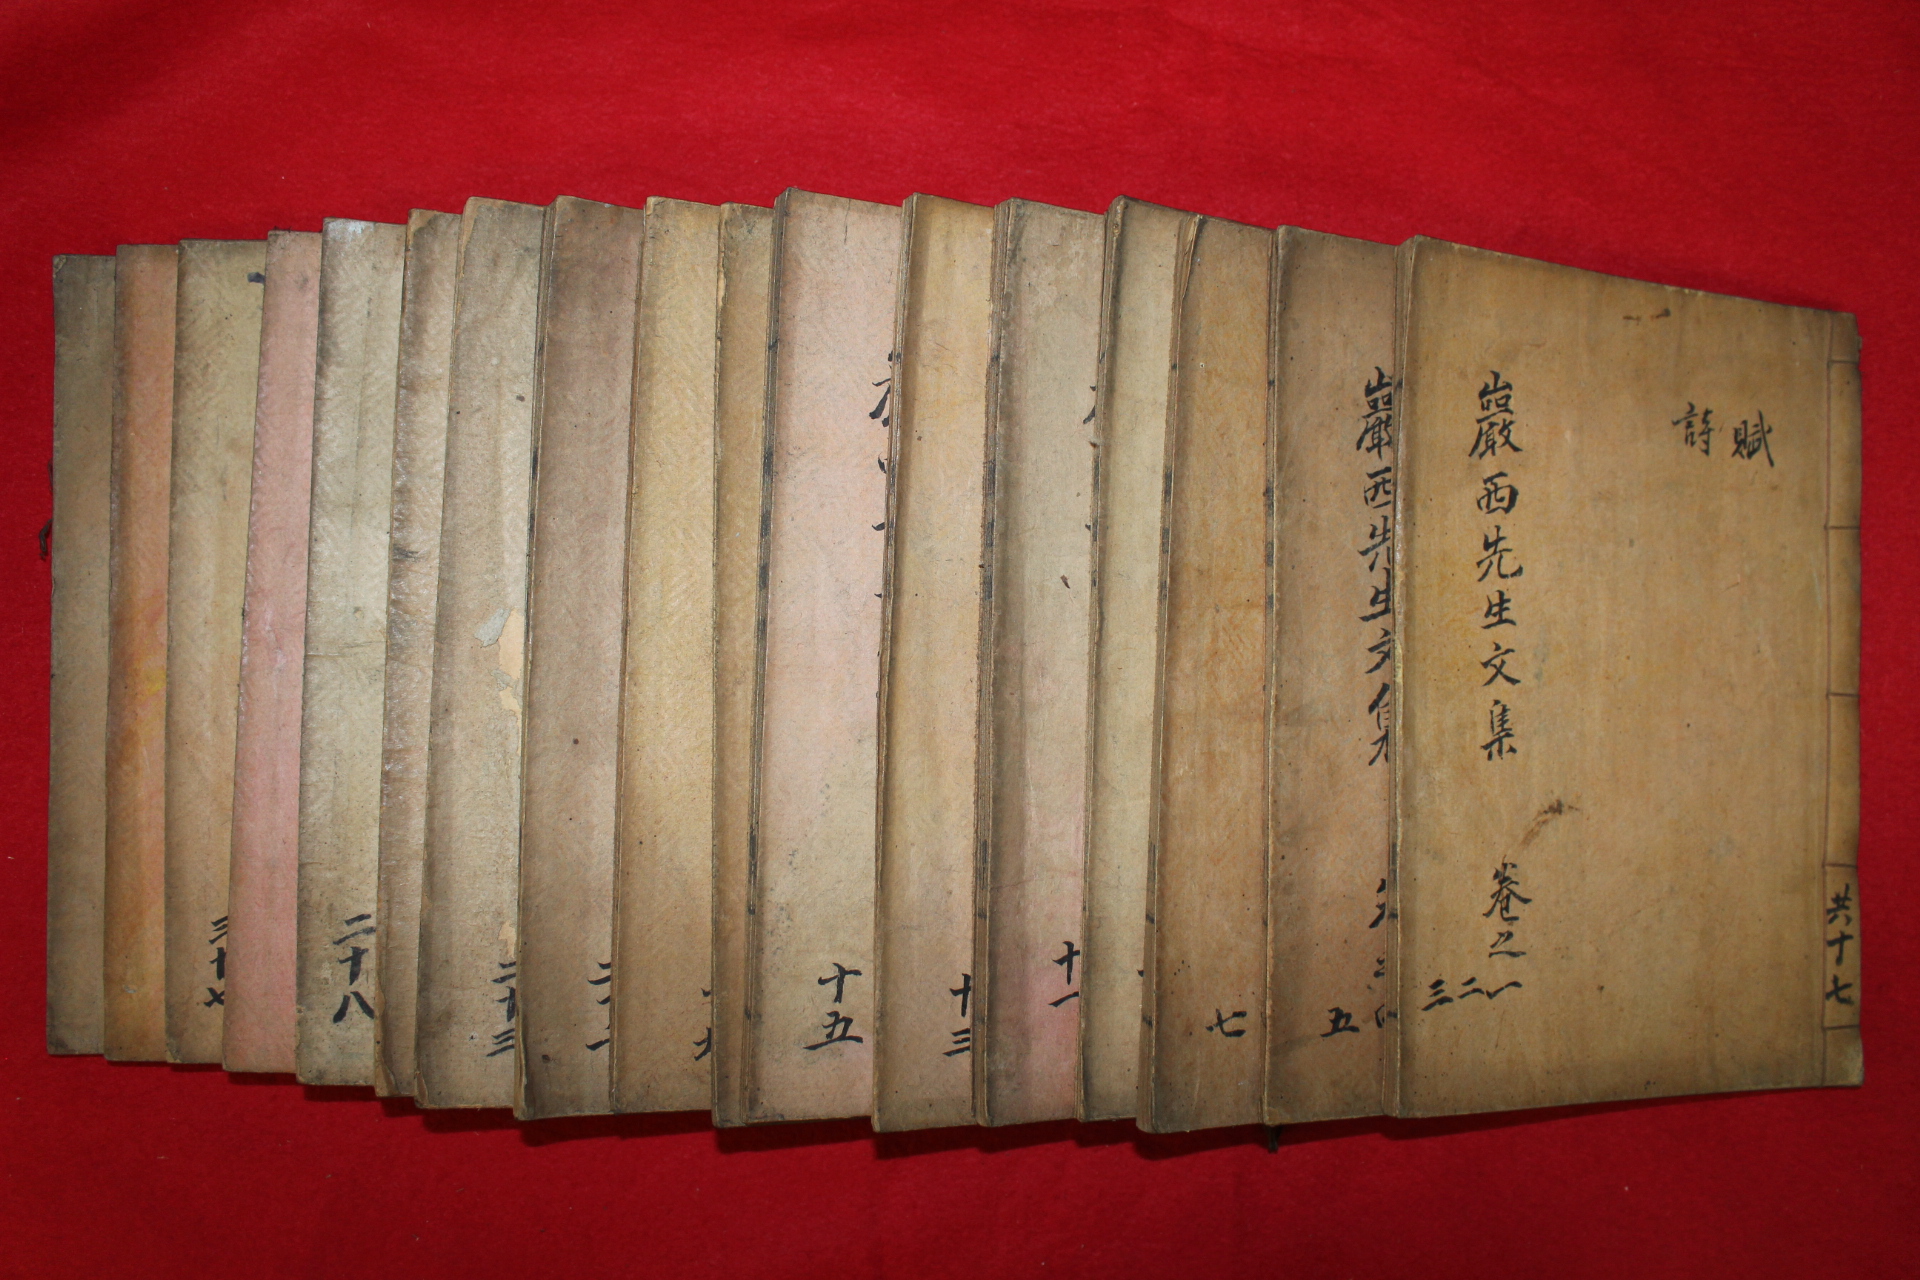 共十七
賦
詩
巖西先生文集 卷之一
二
三
巖西先生文集 卷之四
五
七
十一
十三
十五
二十三
二十八
三十七